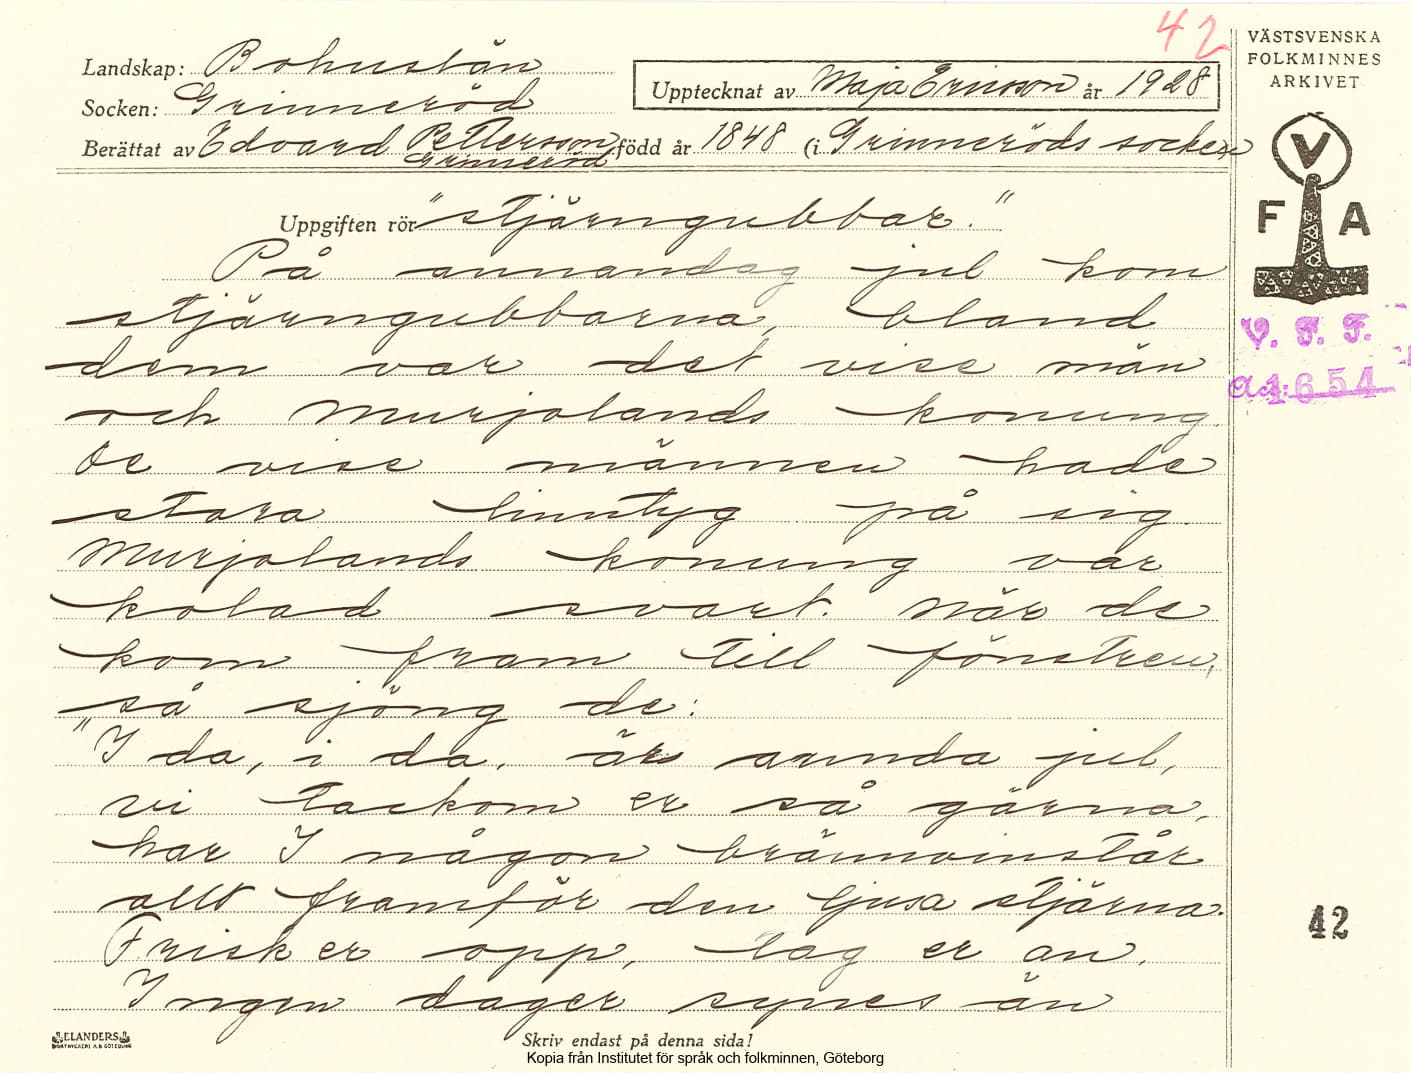 42
VÄSTSVENSKA
FOLKMINNES
ARKIVET
Landskap: Bohuslän
Socken: Grinneröd
Upptecknat av Maja Ericson år 1928
Berättat av Edvard Pettersson född år 1848 (i Grinneröds socken
Grinneröd
V
F A
Uppgiften rör "stjärngubbar."
På annandag jul kom
stjärngubbarna, bland
dem var det vise män
och Murjolands konung.
De vise männen hade
stora linntyg på sig.
Murjolands konung var
kolad svart. När de
kom fram till fönstren,
så sjöng de:
"I da, i da, är annda jul,
vi tackom er så gärna,
har I någon brännvinstår
allt framför den ljusa stjärna.
Frisk er opp, tag er an.
Ingen dager synes än
V. F. F.
Acc. 1654
42
ELANDERS
BOKTRYCKERI A.B. GÖTEBORG
Skriv endast på denna sida!
Kopia från Institutet för språk och folkminnen, Göteborg